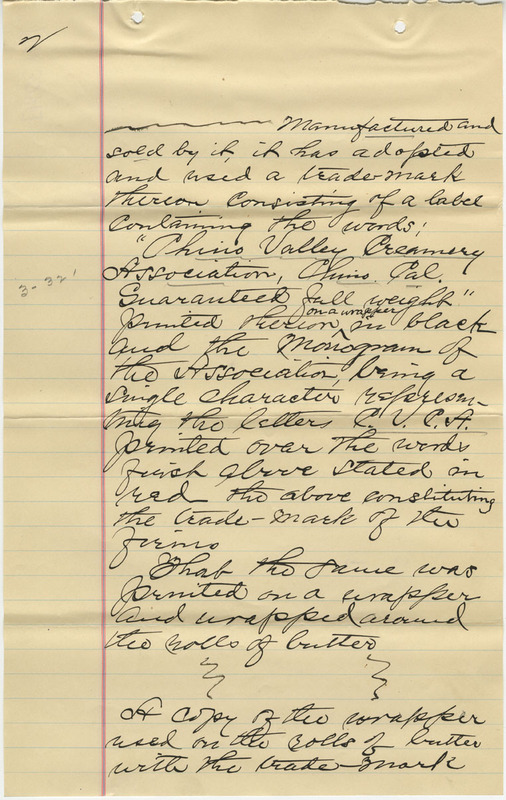 2
Manufactured and
sold by it, it has adopted
and used a trade-mark
thereon consisting of a label
containing the words:
"Chino Valley Creamery
Association, Chino. Cal.
Guaranteed full weight"
on a wrapper
printed thereon in black
and the Monogram of
the Association, being a
single character represen-
ting the letters C. V. C. A.
printed over the words
first above stated in
red the above constituting
the trade-mark of the
firm
That the same was
printed on a wrapper
and wrapped around
the rolls of butter
A copy of the wrapper
used on the rolls of butter
with the trade-mark